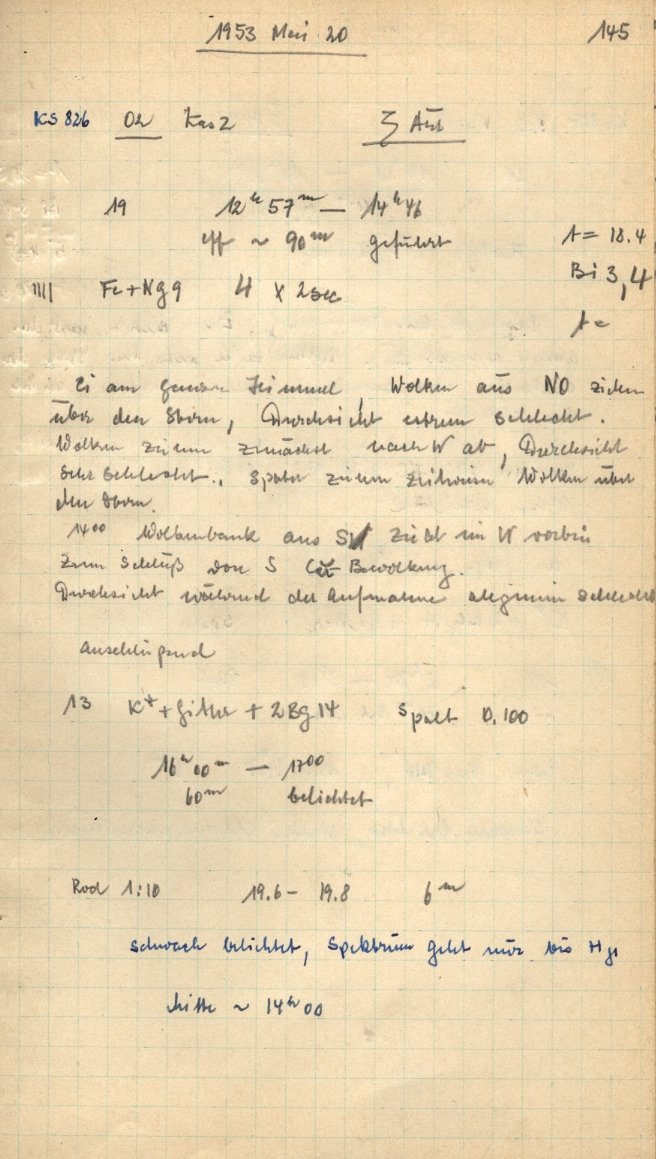 1953 Mai 20 145
KS 826 Oh Kas 2 ζ Aur
19 12ʰ57ᵐ — 14ʰ46
eff ~ 90ᵐ geführt t = 18.4
Bi 3,4
IIII Fe+Hg 9 4 x 2sec
t =
Ci am ganzen Himmel, Wolken aus NO ziehen
über den Stern, Durchsicht extrem schlecht.
Wolken ziehen zunächst nach W ab, Durchsicht
sehr schlecht., später ziehen zeitweise Wolken über
den Stern.
14⁰⁰ Wolkenbank aus SW zieht im W vorbei
Zum Schluß von S Bewölkung.
Durchsicht während der Aufnahme allgemein schlecht
anschließend
13 + Gitter + 2 BG 14 Spalt 0.100
16ʰ00ᵐ — 17⁰⁰
60ᵐ belichtet
Rod 1:10 19.6 – 19.8 6ᵐ
schwach belichtet, Spektrum geht nur bis
Mitte ~ 14ʰ00